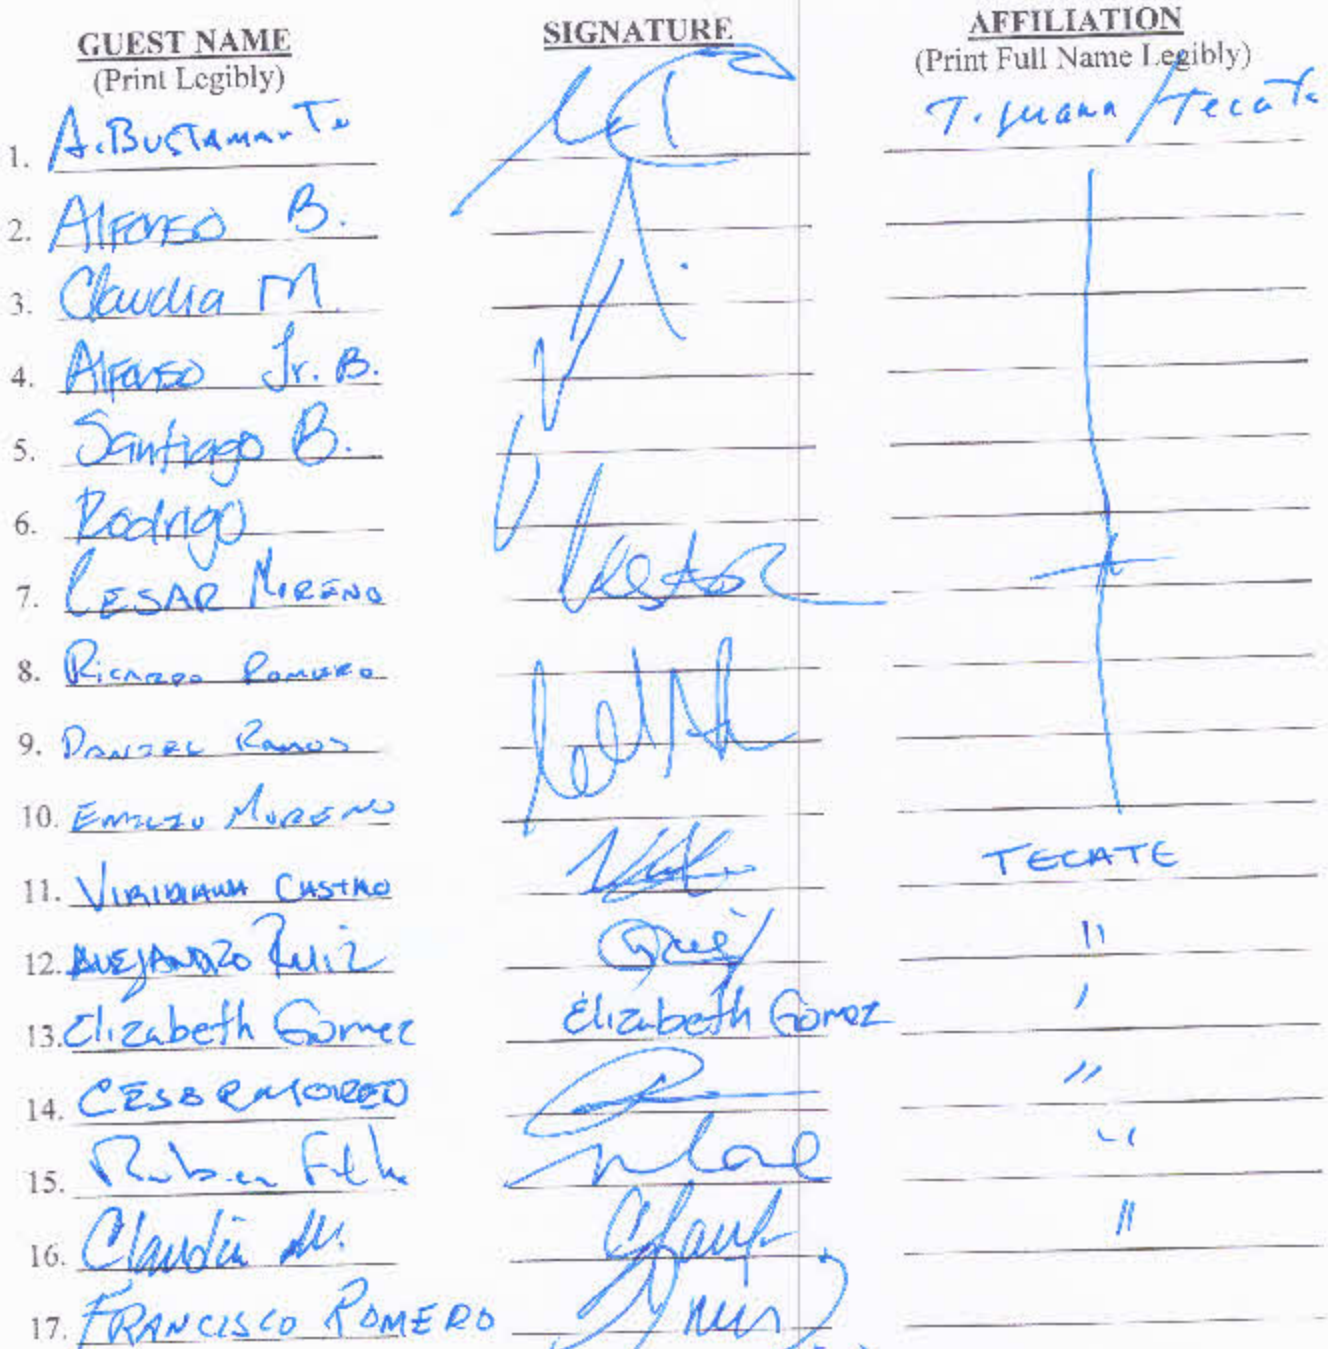 GUEST NAME SIGNATURE AFFILIATION
(Print Legibly) (Print Full Name Legibly)
1. A. BUSTAMANTE Tijuana/Tecate
2. Alfonso B.
3. Claudia M.
4. Alfonso Jr. B.
5. Santiago B.
6. Rodrigo
7. CESAR MORENO
8. RICARDO ROMERO
9. DANIEL RAMOS
10. EMILIO MORENO
11. VIRIDIANA CASTRO TECATE
12. ALEJANDRO RUIZ "
13. Elizabeth Gomez Elizabeth Gomez "
14. "
15. Ruben "
16. Claudia M. "
17. FRANCISCO ROMERO